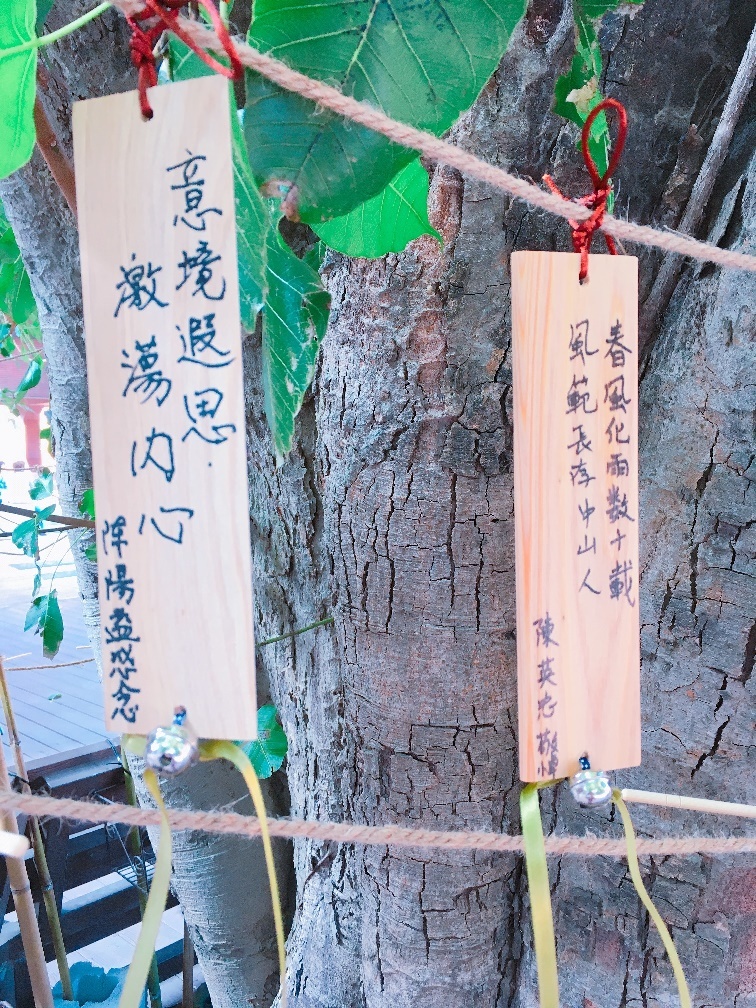 意境遐思
激蕩內心
陈陽益悠念
春風化雨数十載
風範長存中山人
陳英忠敬悼